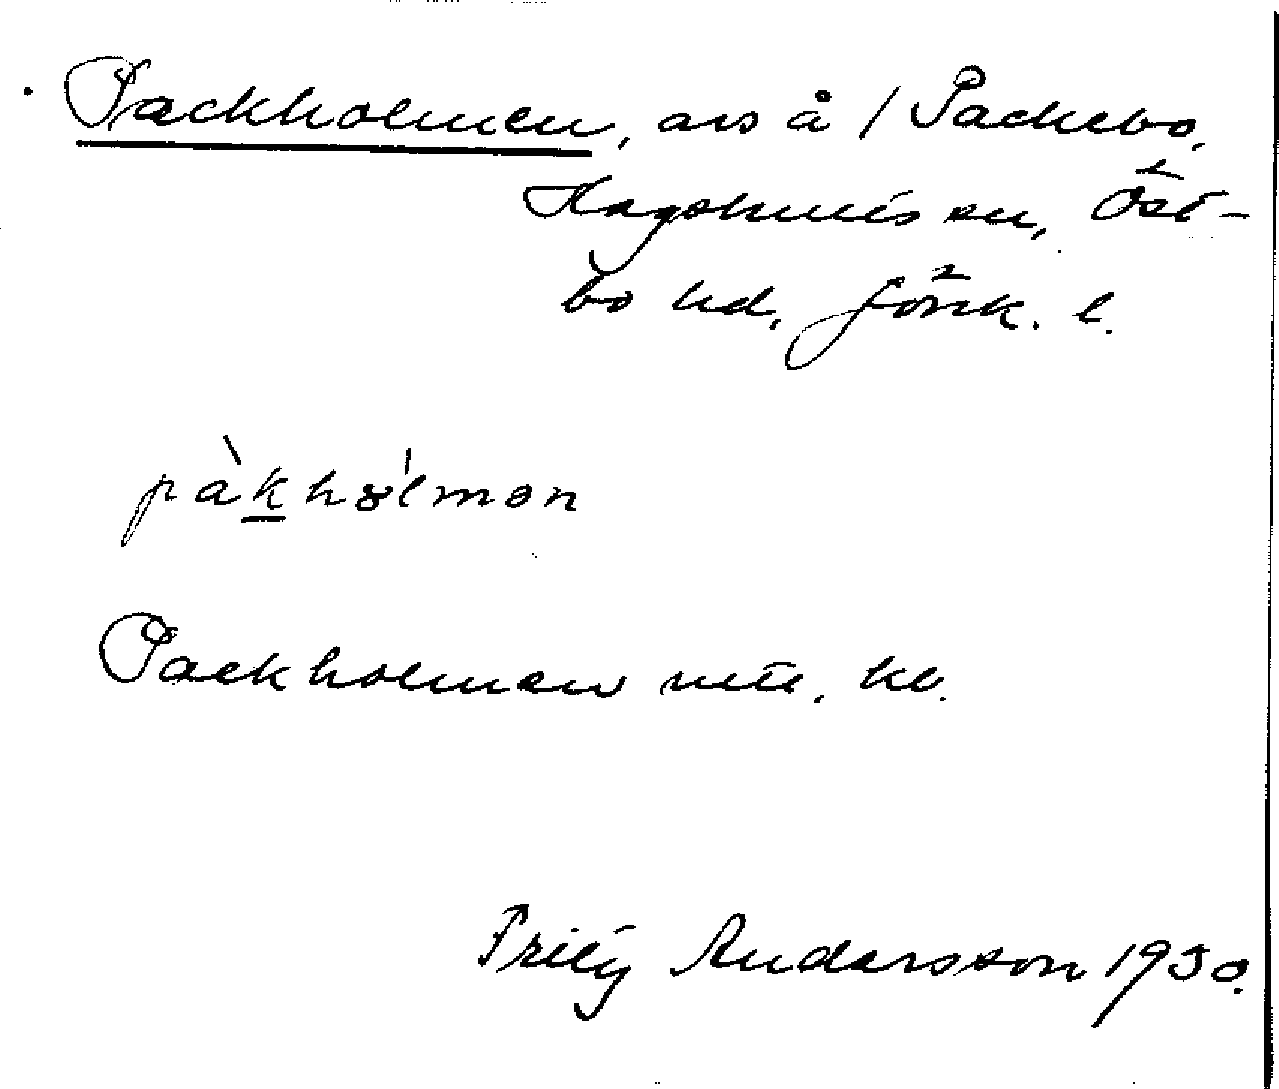 Packholmen, avs å / Packebo,
Kågshult sn, Öst-
bo hd, Jönk. l.
pàkhólmən
Packholmen utt. kl.
Fritz Andersson 1930.